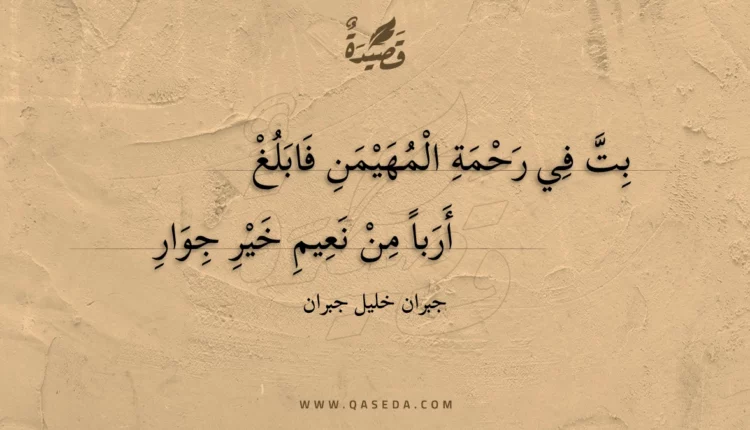 قَصِيْدَةٌ
بِتَّ فِي رَحْمَةِ الْمُهَيْمَنِ فَابَلُغْ
أَرَباً مِنْ نَعِيمِ خَيْرِ جِوَارِ
جبران خليل جبران
WWW.QASEDA.COM